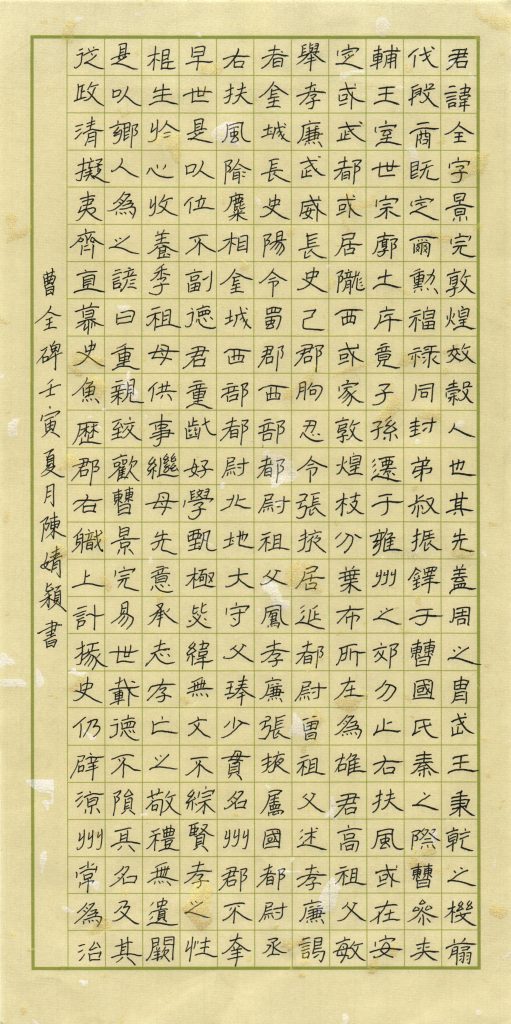 君諱全字景完敦煌效穀人也其先蓋周之胄武王秉乾之機翦
伐殷商既定爾勲福禄同封弟叔振鐸于曹國氏秦之際曹参夾
輔王室世宗廓土斥竟子孫遷于雍州之郊分止右扶風或在安
定或武都或居隴西或家敦煌枝分葉布所在為雄君高祖父敏
舉孝廉武威長史巳郡朐忍令張掖居延都尉曾祖父述孝廉謁
者金城長史陽令蜀郡西部都尉祖父鳳孝廉張掖屬國都尉丞
右扶風隃麋相金城西部都尉北地大守父琫少貫名州郡不幸
早世是以位不副德君童齔好學甄極毖緯無文不綜賢孝之性
根生於心收養季祖母供事繼母先意承志存亡之敬禮無遺闕
是以鄉人為之諺曰重親致歡曹景完易世載德不隕其名及其
從政清擬夷齊直慕史魚歷郡右職上計掾史仍辟涼州常為治
曹全碑壬寅夏月陳婧穎書